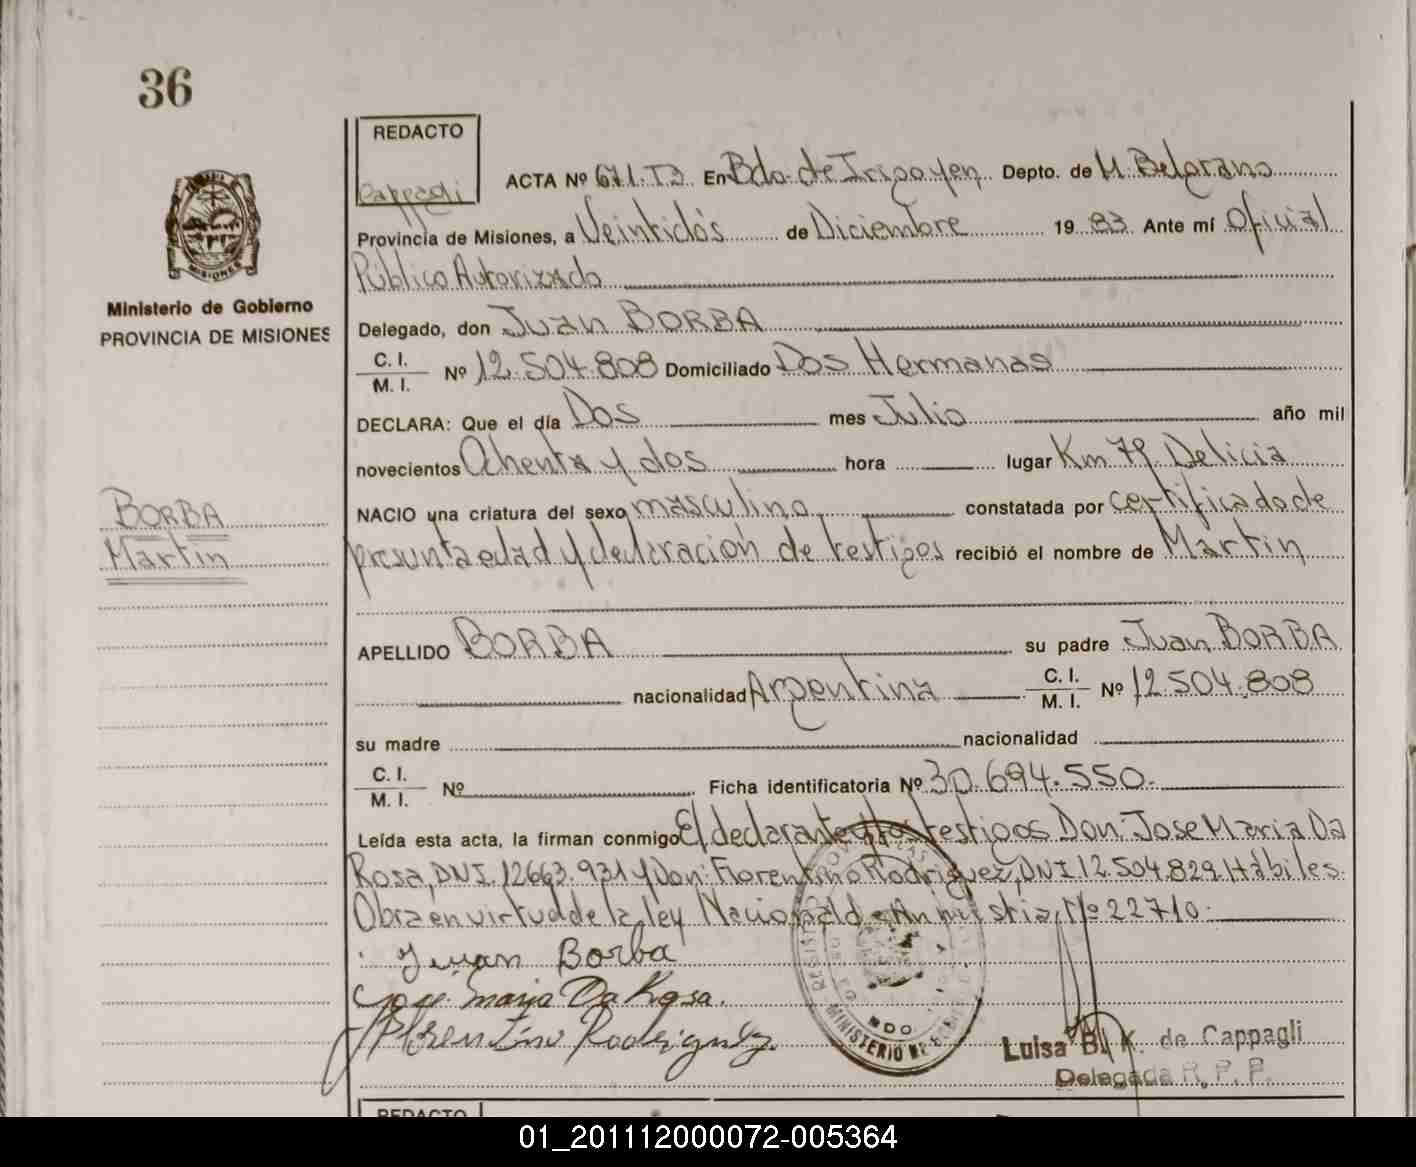 36
REDACTO
Cappagli
ACTA Nº 671.T3. En Bdo. de Irigoyen Depto. de M. Belgrano
Provincia de Misiones, a Veintidós de Diciembre 1983 Ante mí Oficial
Público Autorizado
Ministerio de Gobierno
PROVINCIA DE MISIONES
Delegado, don Juan BORBA
C. I.
M. I. Nº 12.504.808 Domiciliado Dos Hermanas
DECLARA: Que el día Dos mes Julio año mil
novecientos Ochenta y dos hora lugar Km 79. Delicia
BORBA
Martin
NACIO una criatura del sexo masculino constatada por certificado de
presunta edad y declaración de testigos recibió el nombre de Martin
APELLIDO BORBA su padre Juan BORBA
nacionalidad Argentina C. I.
M. I. Nº 12.504.808
su madre nacionalidad
C. I.
M. I. Nº Ficha identificatoria Nº 30.694.550.
Leída esta acta, la firman conmigo El declarante y los testigos Don. Jose Maria Da
Rosa, DNI. 12663.931 y Don: Florentino Rodriguez, DNI 12.504.829 Hábiles.
Obra en virtud de la ley Nacional de Amnistia, Nº 22710.
Juan Borba
José Maria Da Rosa.
Florentino Rodriguez
MINISTERIO DE
Luisa B. K. de Cappagli
Delegada R. P. P.
REDACTO
01_201112000072-005364